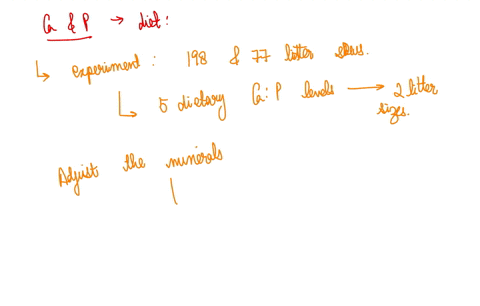 Ca & P → diet:
↳ experiment: 198 & 77 litter
↳ 5 dietary Ca:P levels → 2 litter
sizes.
Adjust the minerals